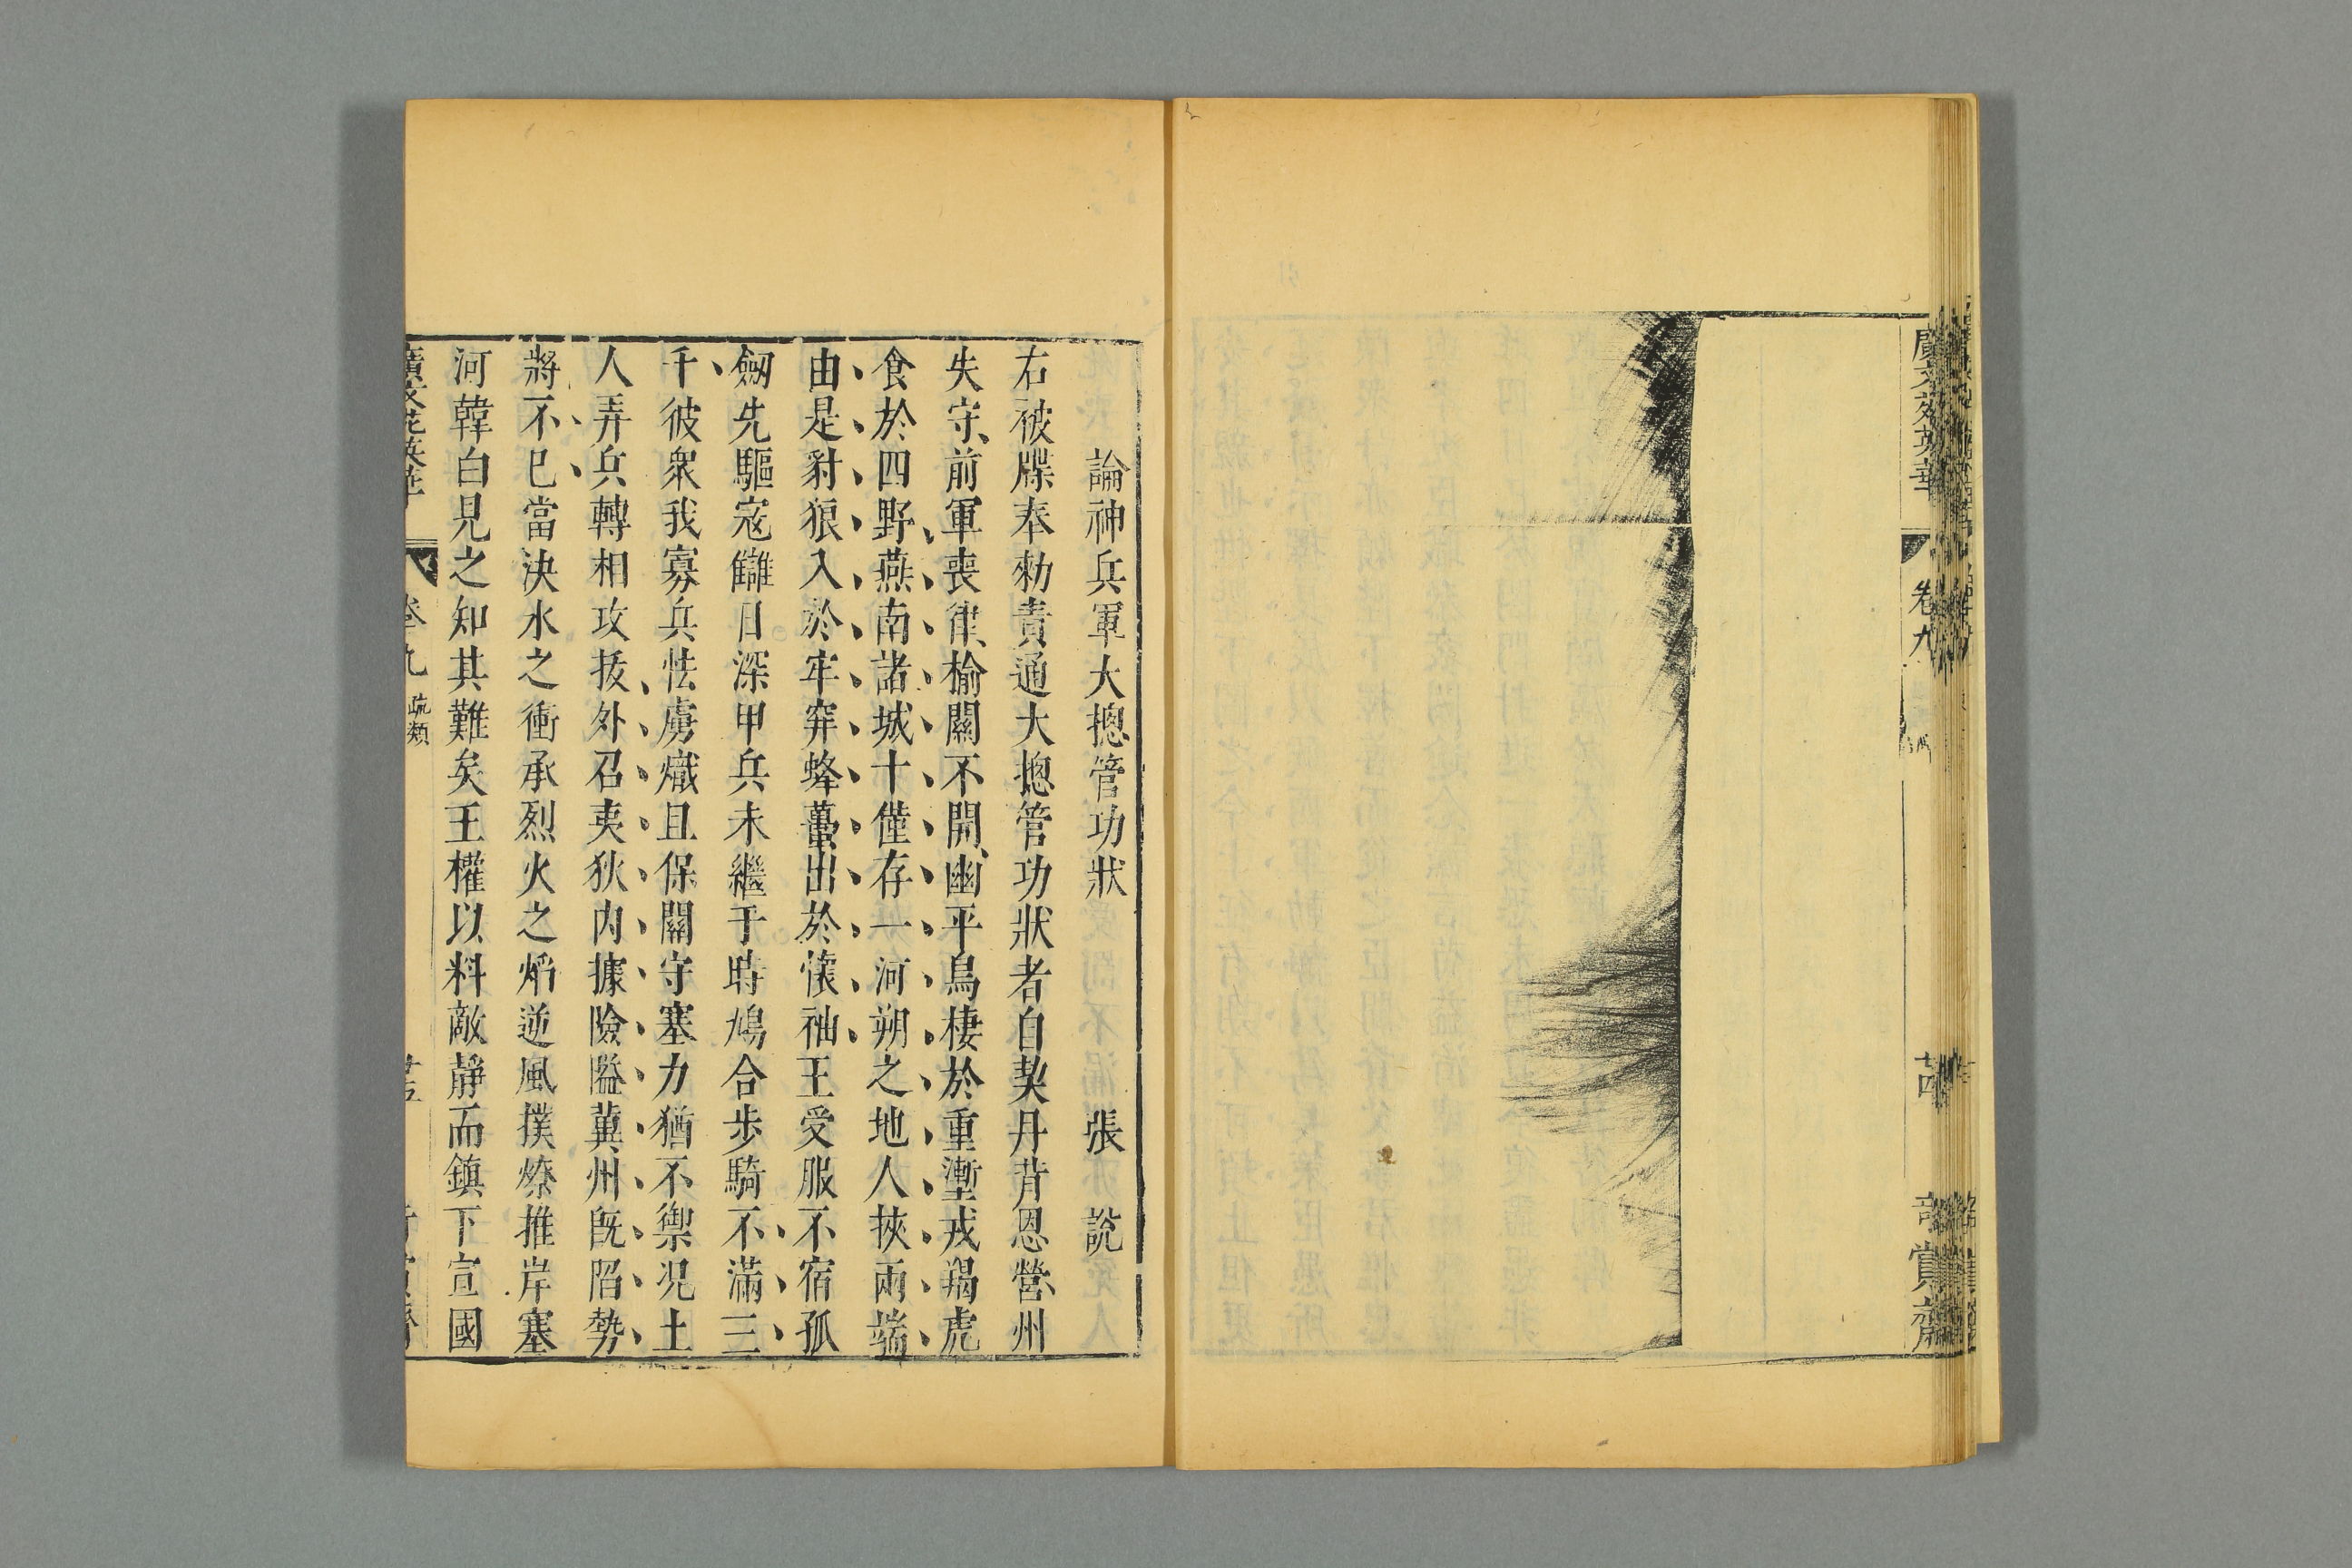 廣文苑英華
卷九
廿四
賞齋
論神兵軍大摠管功狀
張說
右被牒奉勑責通大摠管功狀者自契丹背恩營州
失守前軍喪律榆關不開幽平鳥棲於重塹戎羯虎
食於四野燕南諸城十僅存一河朔之地人挾兩端
由是豺狼入於牢穽蜂蠆出於懷袖王受服不宿孤
劔先驅宼讎日深甲兵未繼于時鳩合步騎不滿三
千彼衆我寡兵怯虜熾且保關守塞力猶不禦况土
人弄兵轉相攻拔外召夷狄内據險隘冀州旣陷勢
將不已當決水之衝承烈火之焰逆風撲燎推岸塞
河韓白見之知其難矣王權以料敵靜而鎮下宣國
廣文苑英華
卷九
疏類